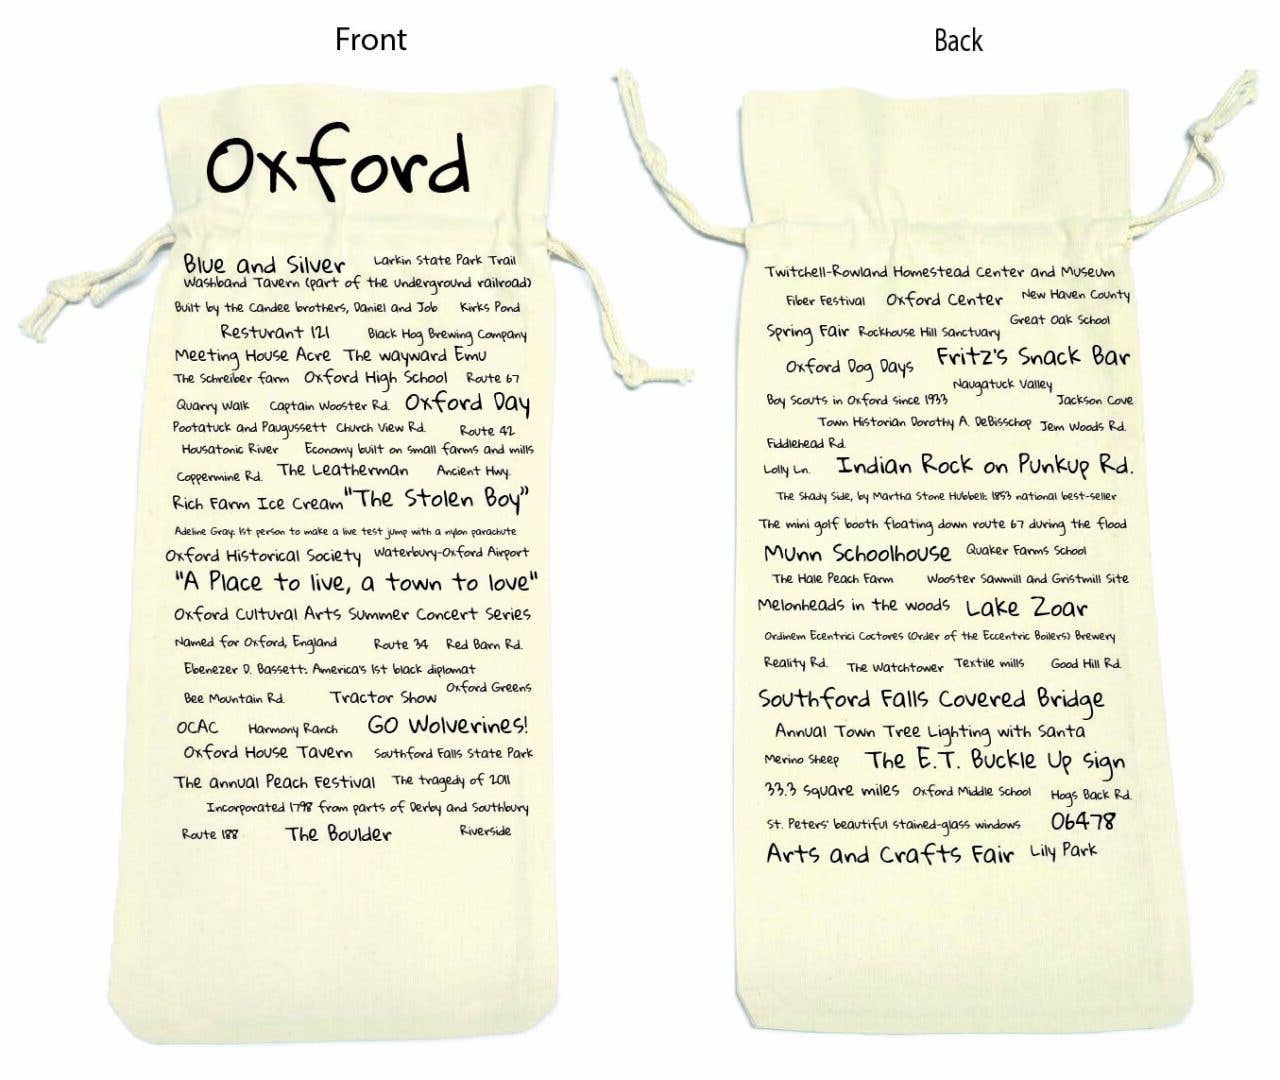 Front
Oxford
Blue and Silver Larkin State Park Trail
Washband Tavern (part of the underground railroad)
Built by the Candee brothers, Daniel and Job Kirks Pond
Resturant 121 Black Hog Brewing Company
Meeting House Acre The wayward Emu
The Schreiber farm Oxford High School Route 67
Quarry Walk Captain Wooster Rd. Oxford Day
Pootatuck and Paugussett Church View Rd. Route 42
Housatonic River Economy built on small farms and mills
Coppermine Rd. The Leatherman Ancient Hwy.
Rich Farm Ice Cream "The Stolen Boy"
Adeline Gray: 1st person to make a live test jump with a nylon parachute
Oxford Historical Society Waterbury-Oxford Airport
"A Place to live, a town to love"
Oxford Cultural Arts Summer Concert Series
Named for Oxford, England Route 34 Red Barn Rd.
Ebenezer D. Bassett: America's 1st black diplomat
Bee Mountain Rd. Tractor Show Oxford Greens
OCAC Harmony Ranch GO Wolverines!
Oxford House Tavern Southford Falls State Park
The annual Peach Festival The tragedy of 2011
Incorporated 1798 from parts of Derby and Southbury
Route 188 The Boulder Riverside
Back
Twitchell-Rowland Homestead Center and Museum
Fiber Festival Oxford Center New Haven County
Great Oak School
Spring Fair Rockhouse Hill Sanctuary
Oxford Dog Days Fritz's Snack Bar
Naugatuck Valley
Boy Scouts in Oxford since 1933 Jackson Cove
Town Historian Dorothy A. DeBisschop Jem Woods Rd.
Fiddlehead Rd.
Lolly Ln. Indian Rock on Punkup Rd.
The Shady Side, by Martha Stone Hubbell: 1853 national best-seller
The mini golf booth floating down route 67 during the flood
Munn Schoolhouse Quaker Farms School
The Hale Peach Farm Wooster Sawmill and Gristmill Site
Melonheads in the woods Lake Zoar
Ordinem Ecentrici Coctores (Order of the Eccentric Boilers) Brewery
Reality Rd. The Watchtower Textile mills Good Hill Rd.
Southford Falls Covered Bridge
Annual Town Tree Lighting with Santa
Merino Sheep The E.T. Buckle Up sign
33.3 square miles Oxford Middle School Hogs Back Rd.
St. Peters' beautiful stained-glass windows 06478
Arts and Crafts Fair Lily Park